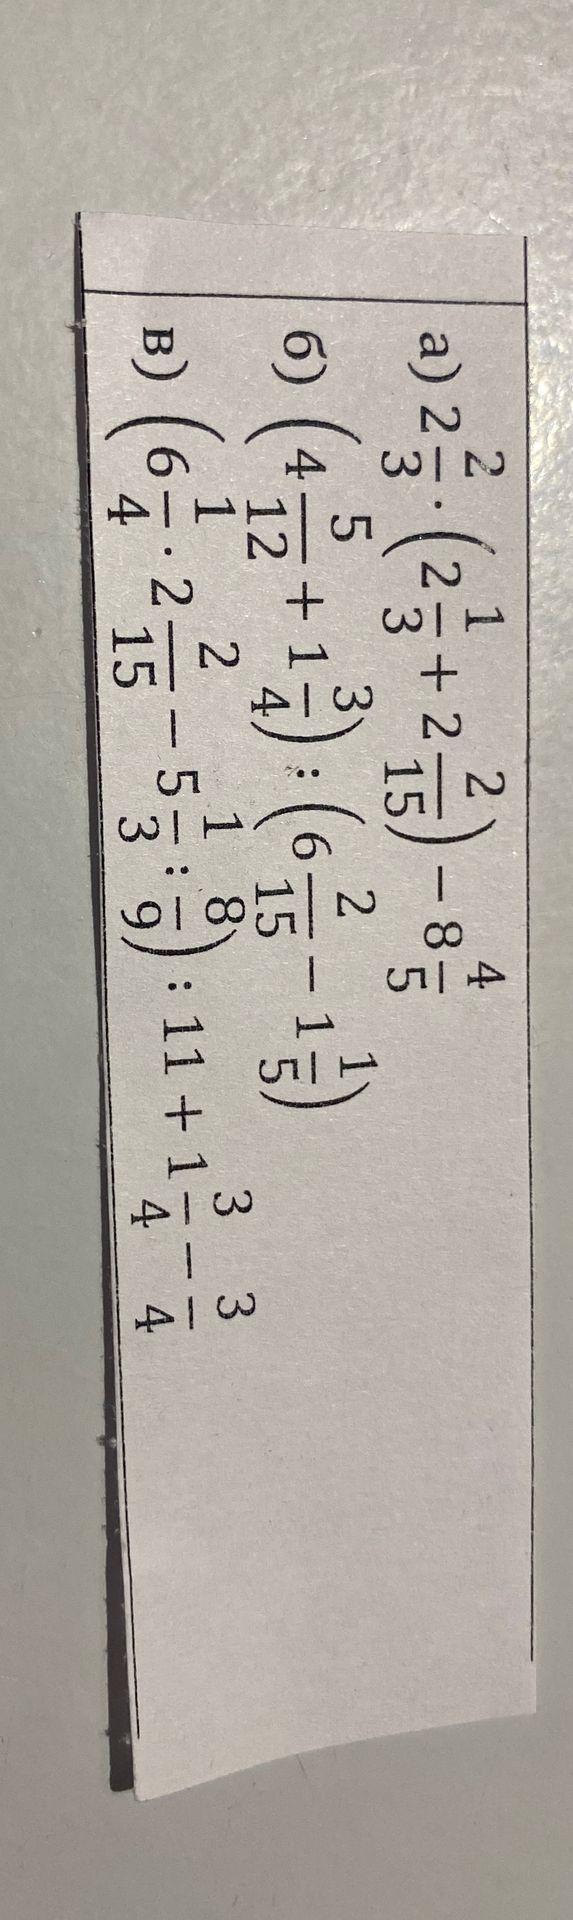 а) 2 2/3 · (2 1/3 + 2 2/15) − 8 4/5
б) (4 5/12 + 1 3/4) : (6 2/15 − 1 1/5)
в) (6 1/4 · 2 2/15 − 5 1/3 : 8/9) : 11 + 1 3/4 − 3/4